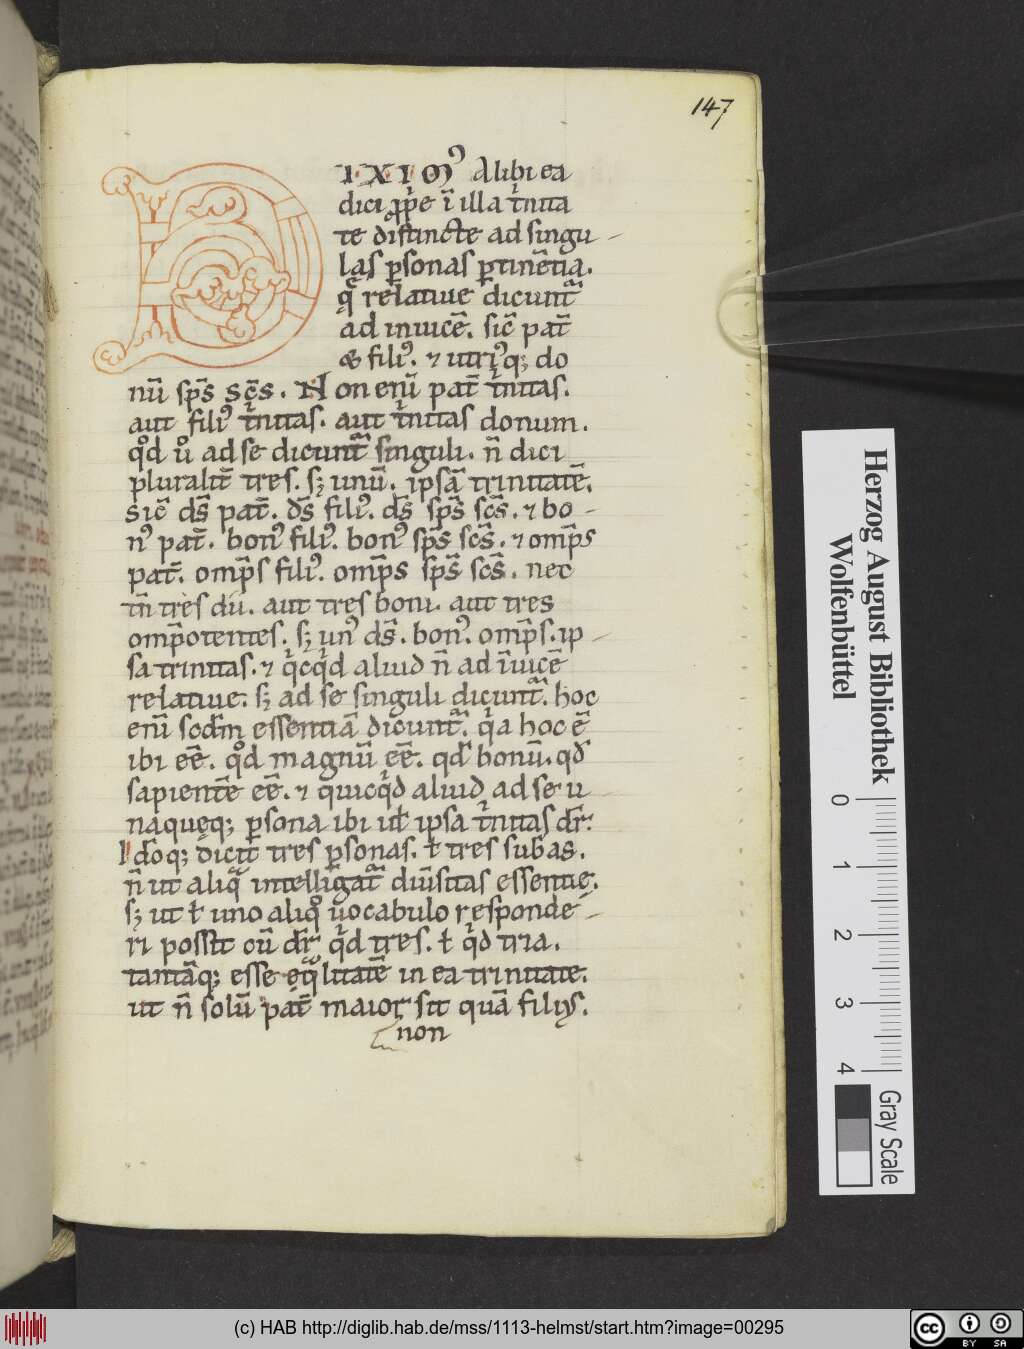 147
DIXIMꝰ alibi ea
dici ꝓp̱e ı̄ illa t̾nita
te distincte ad singu-
las ꝑsonas ꝑtinētia.
q̨ relatiue dicunt̄
ad inuicē. sic̄ pat̄
& filiꝰ. ⁊ utriꝰq; do
nū sp̄s sc̄s. Non enī pat̄ t̾nitas.
aut filiꝰ t̾nitas. aut t̾nitas donum.
qd̊ ů ad se dicunt̄ singuli. n̄ dici
pluralit̄ tres. s; unū. ipsā trinitatē.
Sic̄ ds̄ pat̄. ds̄ filiꝰ. ds̄ sp̄s sc̄s. ⁊ bo-
nꝰ pat̄. bonꝰ filiꝰ. bonꝰ sp̄s sc̄s. ⁊ omp̄s
pat̄. omp̄s filiꝰ. omp̄s sp̄s sc̄s. nec
tn̄ tres dii. aut tres boni. aut tres
omp̄otentes. s; unꝰ ds̄. bonꝰ. omp̄s. ip-
sa trinitas. ⁊ qͥcqͥd aliud n̄ ad ı̄uicē
relatiue. s; ad se singuli dicunt̄. hoc
enī scdm̄ essentiā dicunt̄. qͥa hoc ē
ibi eē. qd̊ magnū eē. qd̊ bonū. qd̊
sapientē eē. ⁊ quicqͥd aliud ad se u
naqueq; ꝑsona ibi ut̄ ipsa t̾nitas dr̄.
Idōq; dicit̄ tres ꝑsonas. ł tres suƀas.
n̄ ut aliq̄ intelligat̄ diūsitas essentie.
s; ut ł uno aliqͦ uocabulo responde-
ri possit cū dr̄ qͥd tres. ł qͥd tria.
tantāq; esse eqͣlitatē in ea trinitate.
ut n̄ solū pat̄ maior sit quā filiꝰ.
non
Herzog August Bibliothek
Wolfenbüttel
0 1 2 3 4
Gray Scale
(c) HAB http://diglib.hab.de/mss/1113-helmst/start.htm?image=00295
cc BY SA